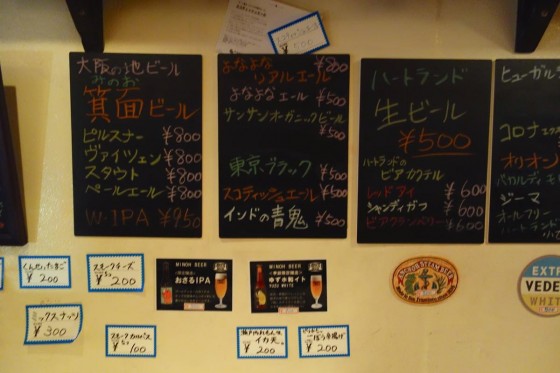 大阪の地ビール
みのお
箕面ビール
ピルスナー ¥800
ヴァイツェン ¥800
スタウト ¥800
ペールエール ¥800
W-IPA ¥950
よなよな
リアルエール ¥800
よなよなエール ¥500
サンサンオーガニックビール
¥500
東京ブラック ¥500
スコティッシュエール ¥500
インドの青鬼 ¥500
ハートランド
生ビール
¥500
ハートランドの
ビアカクテル
レッドアイ ¥600
シャンディガフ ¥600
ビアクランベリー ¥600
ヒューガル
コロナ
オリオン
バカルディ
ジーマ
オールフリー
ハートランド
くんせいたまご
¥200
スモークチーズ
¥200
MINOH BEER
おさるIPA
MINOH BEER
ゆずホ和イト
ANCHOR STEAM BEER
EXTRA
VEDE
WHIT
ミックスナッツ
¥300
スモークカルパス
¥100
瀬戸内れもん味
イカ天
¥200
ごぼう唐揚げ
¥200